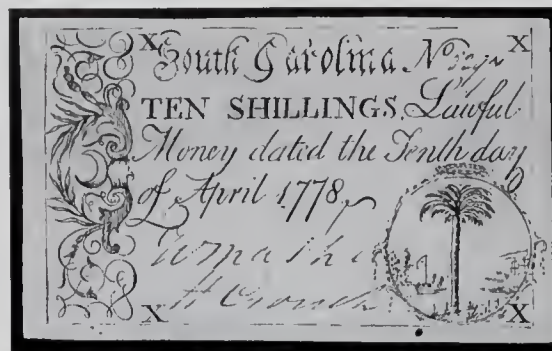 X South Carolina No X
TEN SHILLINGS, Lawful
Money dated the Tenth day
of April 1778
X X